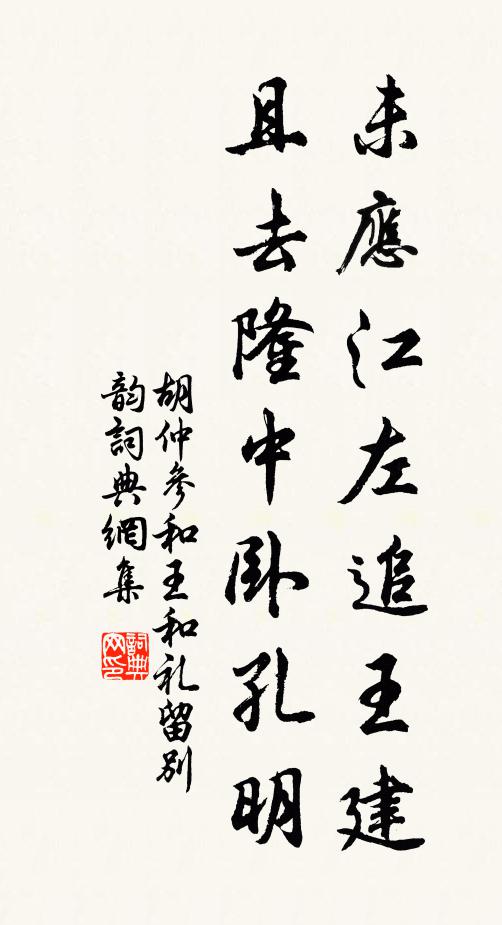 未應江左追王建
且去隆中卧孔明
胡仲參和王和礼留别
韵詞典網集
詞典网印